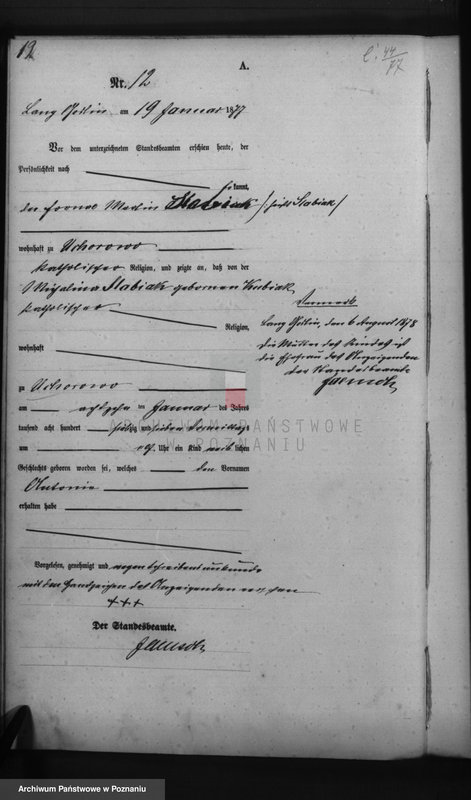 12
A.
Nr. 12
Lang Goslin am 19 Januar 1877
Vor dem unterzeichneten Standesbeamten erschien heute, der
Persönlichkeit nach
kannt,
der Fornal Martin Slabiak
wohnhaft zu Uchorowo
katholischer Religion, und zeigte an, daß von der
Michalina Slabiak geborenen Kubiak
katholischer
Religion,
Vermerk
Lang Goslin, den 6 August 1878
Die Mutter des Kindes ist
die Ehefrau des Anzeigenden
Der Standesbeamte
wohnhaft
zu Uchorowo
am achtzehn ten Januar des Jahres
tausend acht hundert siebzig und sieben Vormittags
um Uhr ein Kind weiblichen
Geschlechts geboren worden sei, welches den Vornamen
Antonie
erhalten habe
ARCHIWUM PAŃSTWOWE
W POZNANIU
Vorgelesen, genehmigt und wegen Schreibensunkunde
mit dem Handzeichen des Anzeigenden versehen
+++
Der Standesbeamte.
Archiwum Państwowe w Poznaniu